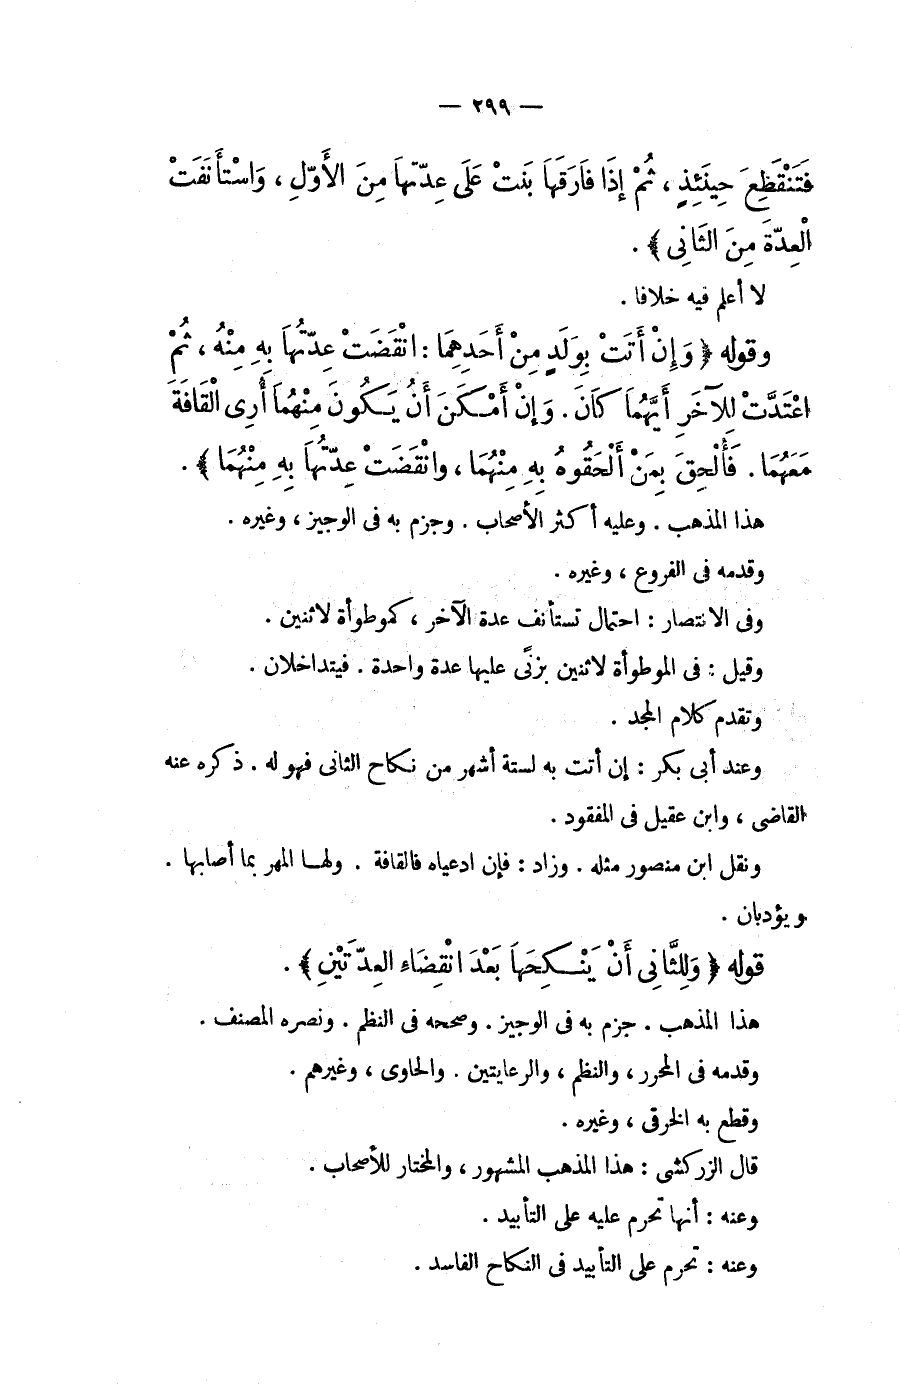 — ٢٩٩ —
فَتَنْقَطِعَ حِينَئِذٍ ، ثُمْ إِذَا فَارَقَهَا بَنَتْ عَلَى عِدّتهاَ مِنَ الأَوّلِ ، وَاسْتأْنَفَتْ
الْعِدّةَ مِنَ الثَانِى ﴾ .
لا أعلم فيه خلافا .
وقوله ﴿ وَإِنْ أَتَتْ بِوَلَدٍ مِنْ أَحَدِهِمَا : انْقَضَتْ عِدّتُهاَ بِهِ مِنْهُ ، ثُمْ
اعْتَدَّتْ لِلآخَرِ أَيَّهُمَا كاَنَ . وَإِنْ أَمْكَنَ أَنُ يَكُونَ مِنْهُمَا أُرِى الْقَافَةَ
مَعَهُمَا . فَأُلْحِقَ بِمَنْ أَلْحَقُوهُ بِهِ مِنْهُمَا ، وانْقَضَتْ عِدّتُهاَ بِهِ مِنْهُمَا ﴾ .
هذا المذهب . وعليه أكثر الأصحاب . وجزم به فى الوجيز ، وغيره .
وقدمه فى الفروع ، وغيره .
وفى الانتصار : احتمال تستأنف عدة الآخر ، كموطوأة لاثنين .
وقيل : فى الموطوأة لاثنين بزنًى عليها عدة واحدة . فيتداخلان .
وتقدم كلام المجد .
وعند أبى بكر : إن أتت به لستة أشهر من نكاح الثانى فهو له . ذكره عنه
القاضى ، وابن عقيل فى المفقود .
ونقل ابن منصور مثله . وزاد : فإن ادعياه فالقافة . ولها المهر بما أصابها .
ويؤدبان .
قوله ﴿ وَلِلثَّانِى أَنْ يَنْكِحَهاَ بَعْدَ انْقِضَاءِ العِدّتَيْنِ ﴾ .
هذا المذهب . جزم به فى الوجيز . وصححه فى النظم . ونصره المصنف .
وقدمه فى المحرر ، والنظم ، والرعايتين . والحاوى ، وغيرهم .
وقطع به الخرقى ، وغيره .
قال الزركشى : هذا المذهب المشهور ، والمختار للأصحاب .
وعنه : أنها تحرم عليه على التأبيد .
وعنه : تحرم على التأبيد فى النكاح الفاسد .